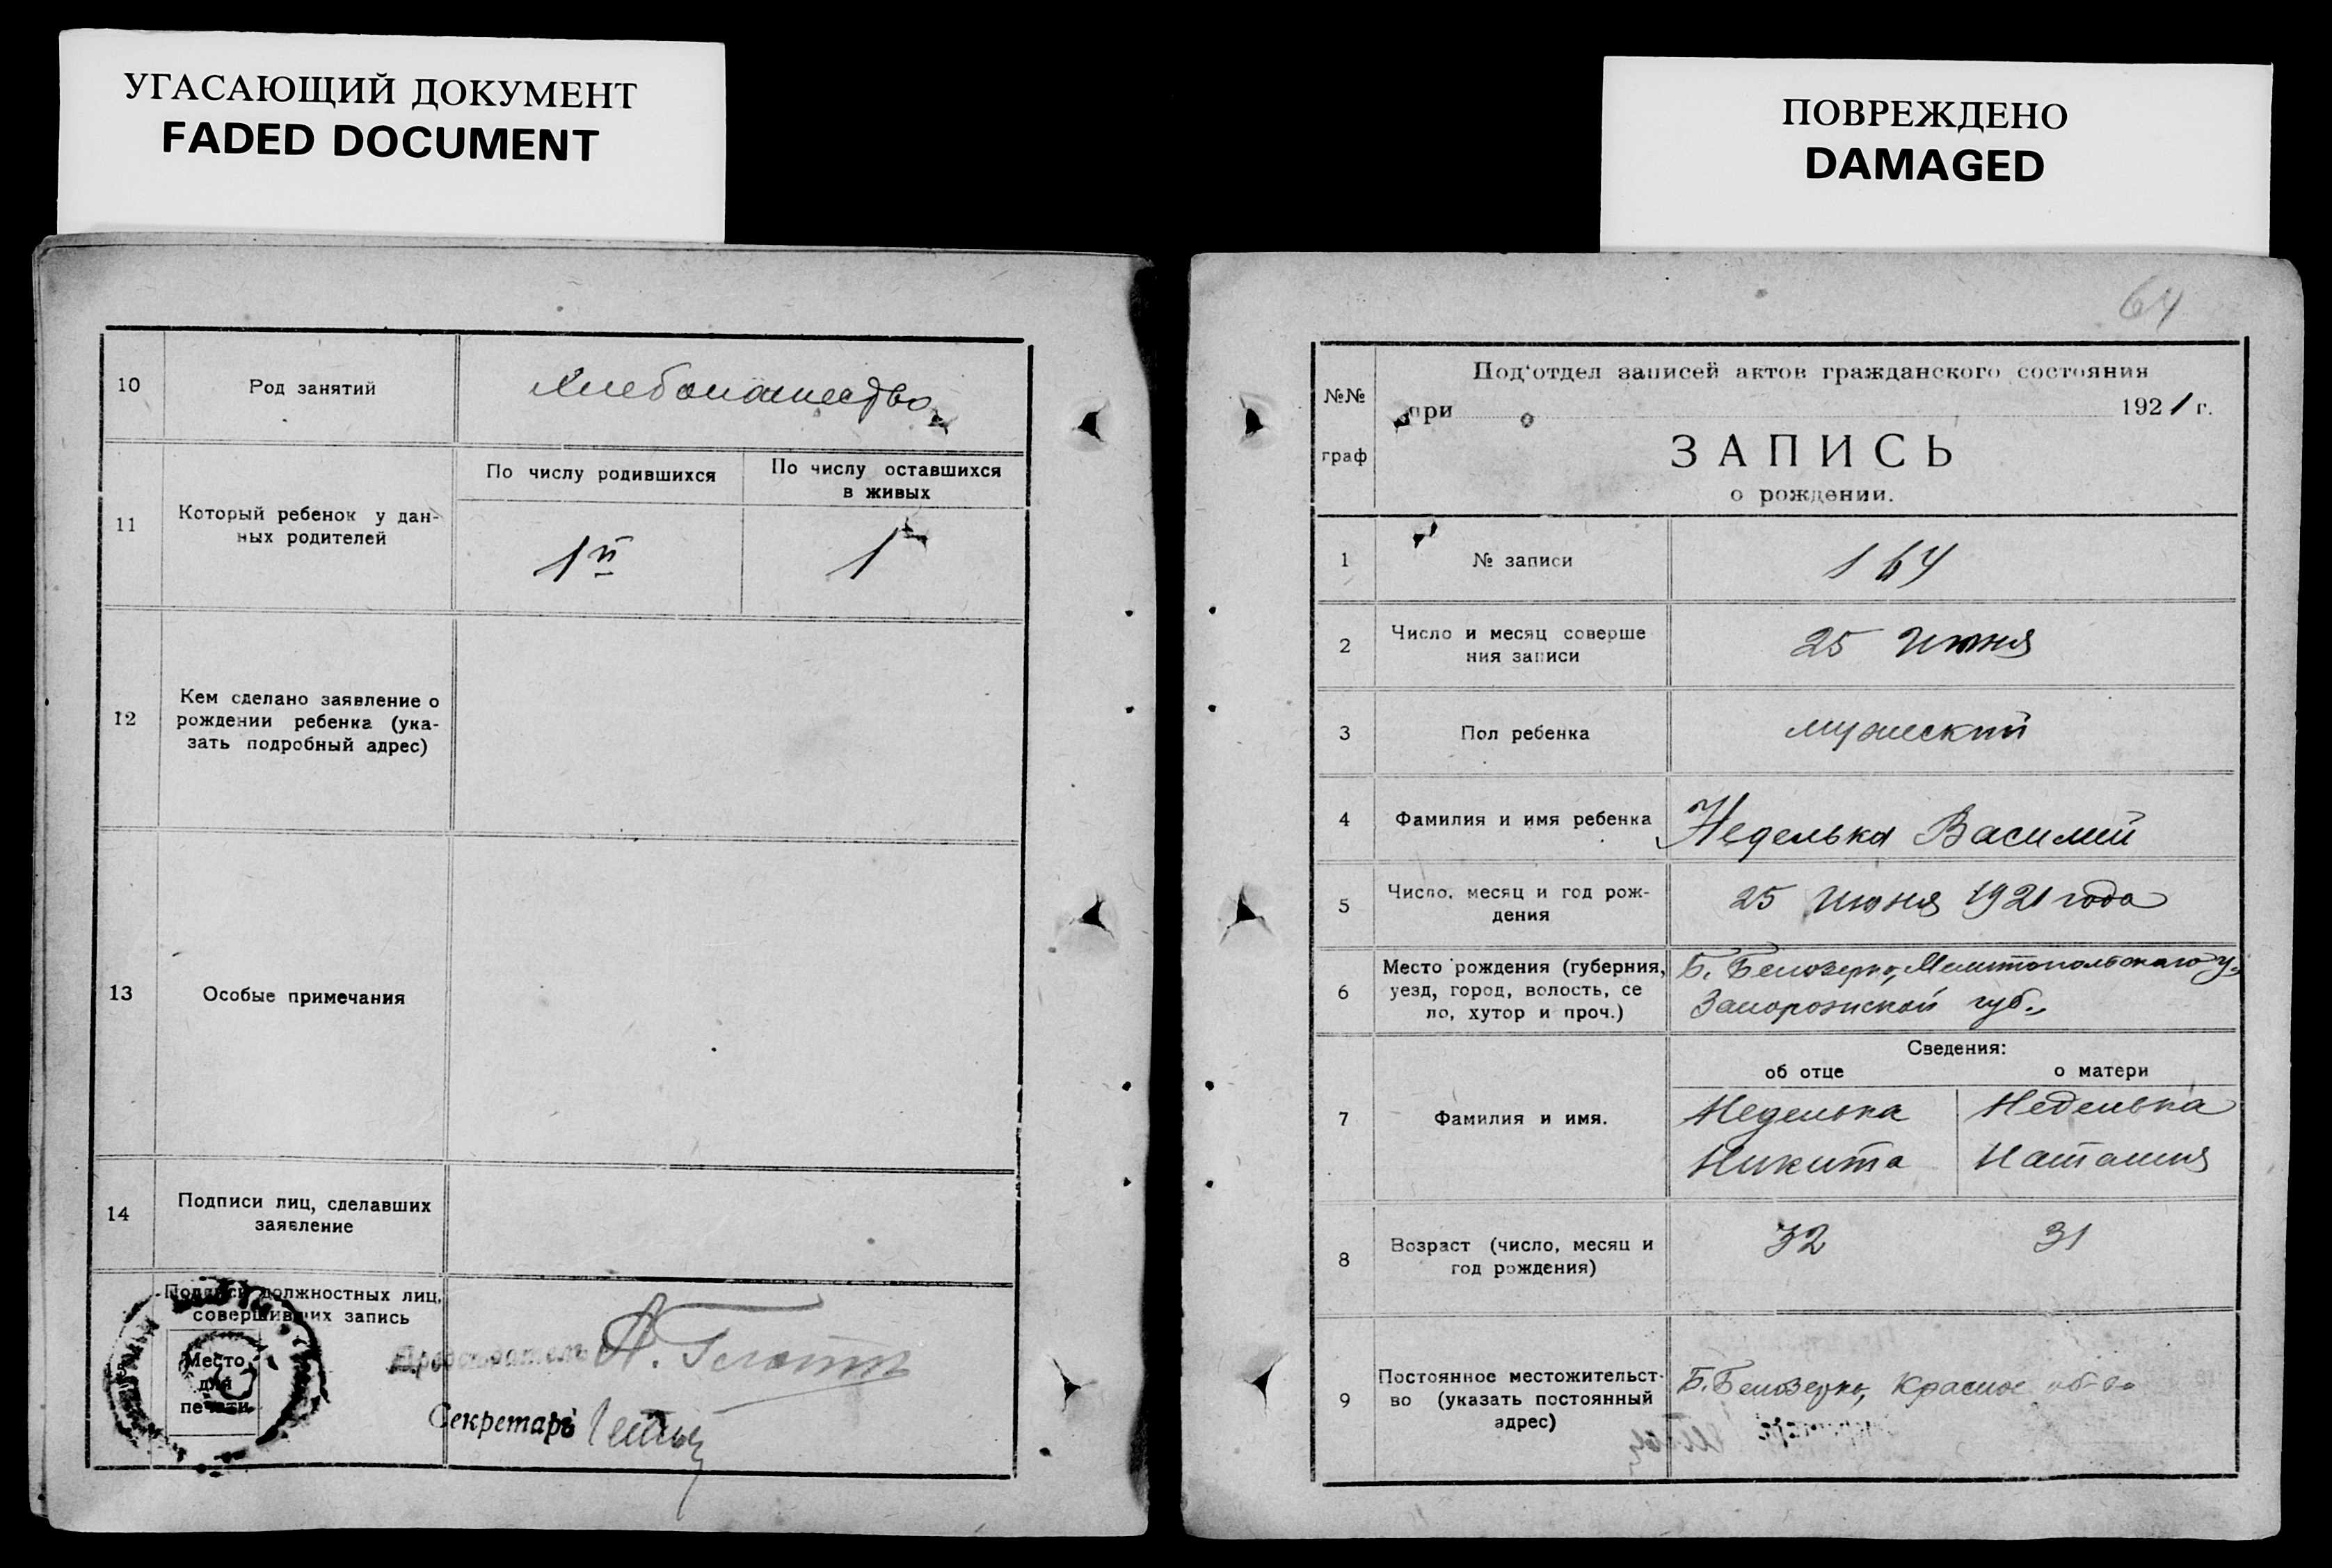 УГАСАЮЩИЙ ДОКУМЕНТ
FADED DOCUMENT
ПОВРЕЖДЕНО
DAMAGED
10
Род занятий
Хлебопашество
11
Который ребенок у дан-
ных родителей
По числу родившихся
По числу оставшихся
в живых
1й
1
12
Кем сделано заявление о
рождении ребенка (ука-
зать подробный адрес)
13
Особые примечания
14
Подписи лиц, сделавших
заявление
Подписи должностных лиц,
совершивших запись
Место
для
печати
Председатель А.
Секретарь
64
№№
граф
Под'отдел записей актов гражданского состояния
при 1921 г.
ЗАПИСЬ
о рождении.
1
№ записи
164
2
Число и месяц соверше
ния записи
25 Июня
3
Пол ребенка
мужеский
4
Фамилия и имя ребенка
Неделька Василий
5
Число, месяц и год рож-
дения
25 Июня 1921 года
6
Место рождения (губерния,
уезд, город, волость, се
ло, хутор и проч.)
Б. Белозерка, Мелитопольскаго у.
Запорожской губ.
Сведения:
об отце
о матери
7
Фамилия и имя.
Неделька
Никита
Неделька
Наталия
8
Возраст (число, месяц и
год рождения)
32
31
9
Постоянное местожительст-
во (указать постоянный
адрес)
Б. Белозерка, Красное об-во